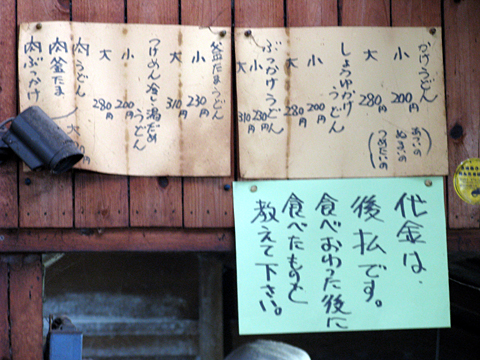 かけうどん
小 200円
大 280円
(あついの
ぬるいの
つめたいの)
しょうゆかけうどん
小 200円
大 280円
ぶっかけうどん
小 230円
大 310円
釜たまうどん
小 230円
大 310円
つけめん 冷し 湯だめうどん
小 200円
大 280円
肉うどん
肉釜たま
肉ぶっかけ
大
代金は、
後払です。
食べおわった後に
食べたものを
教えて下さい。